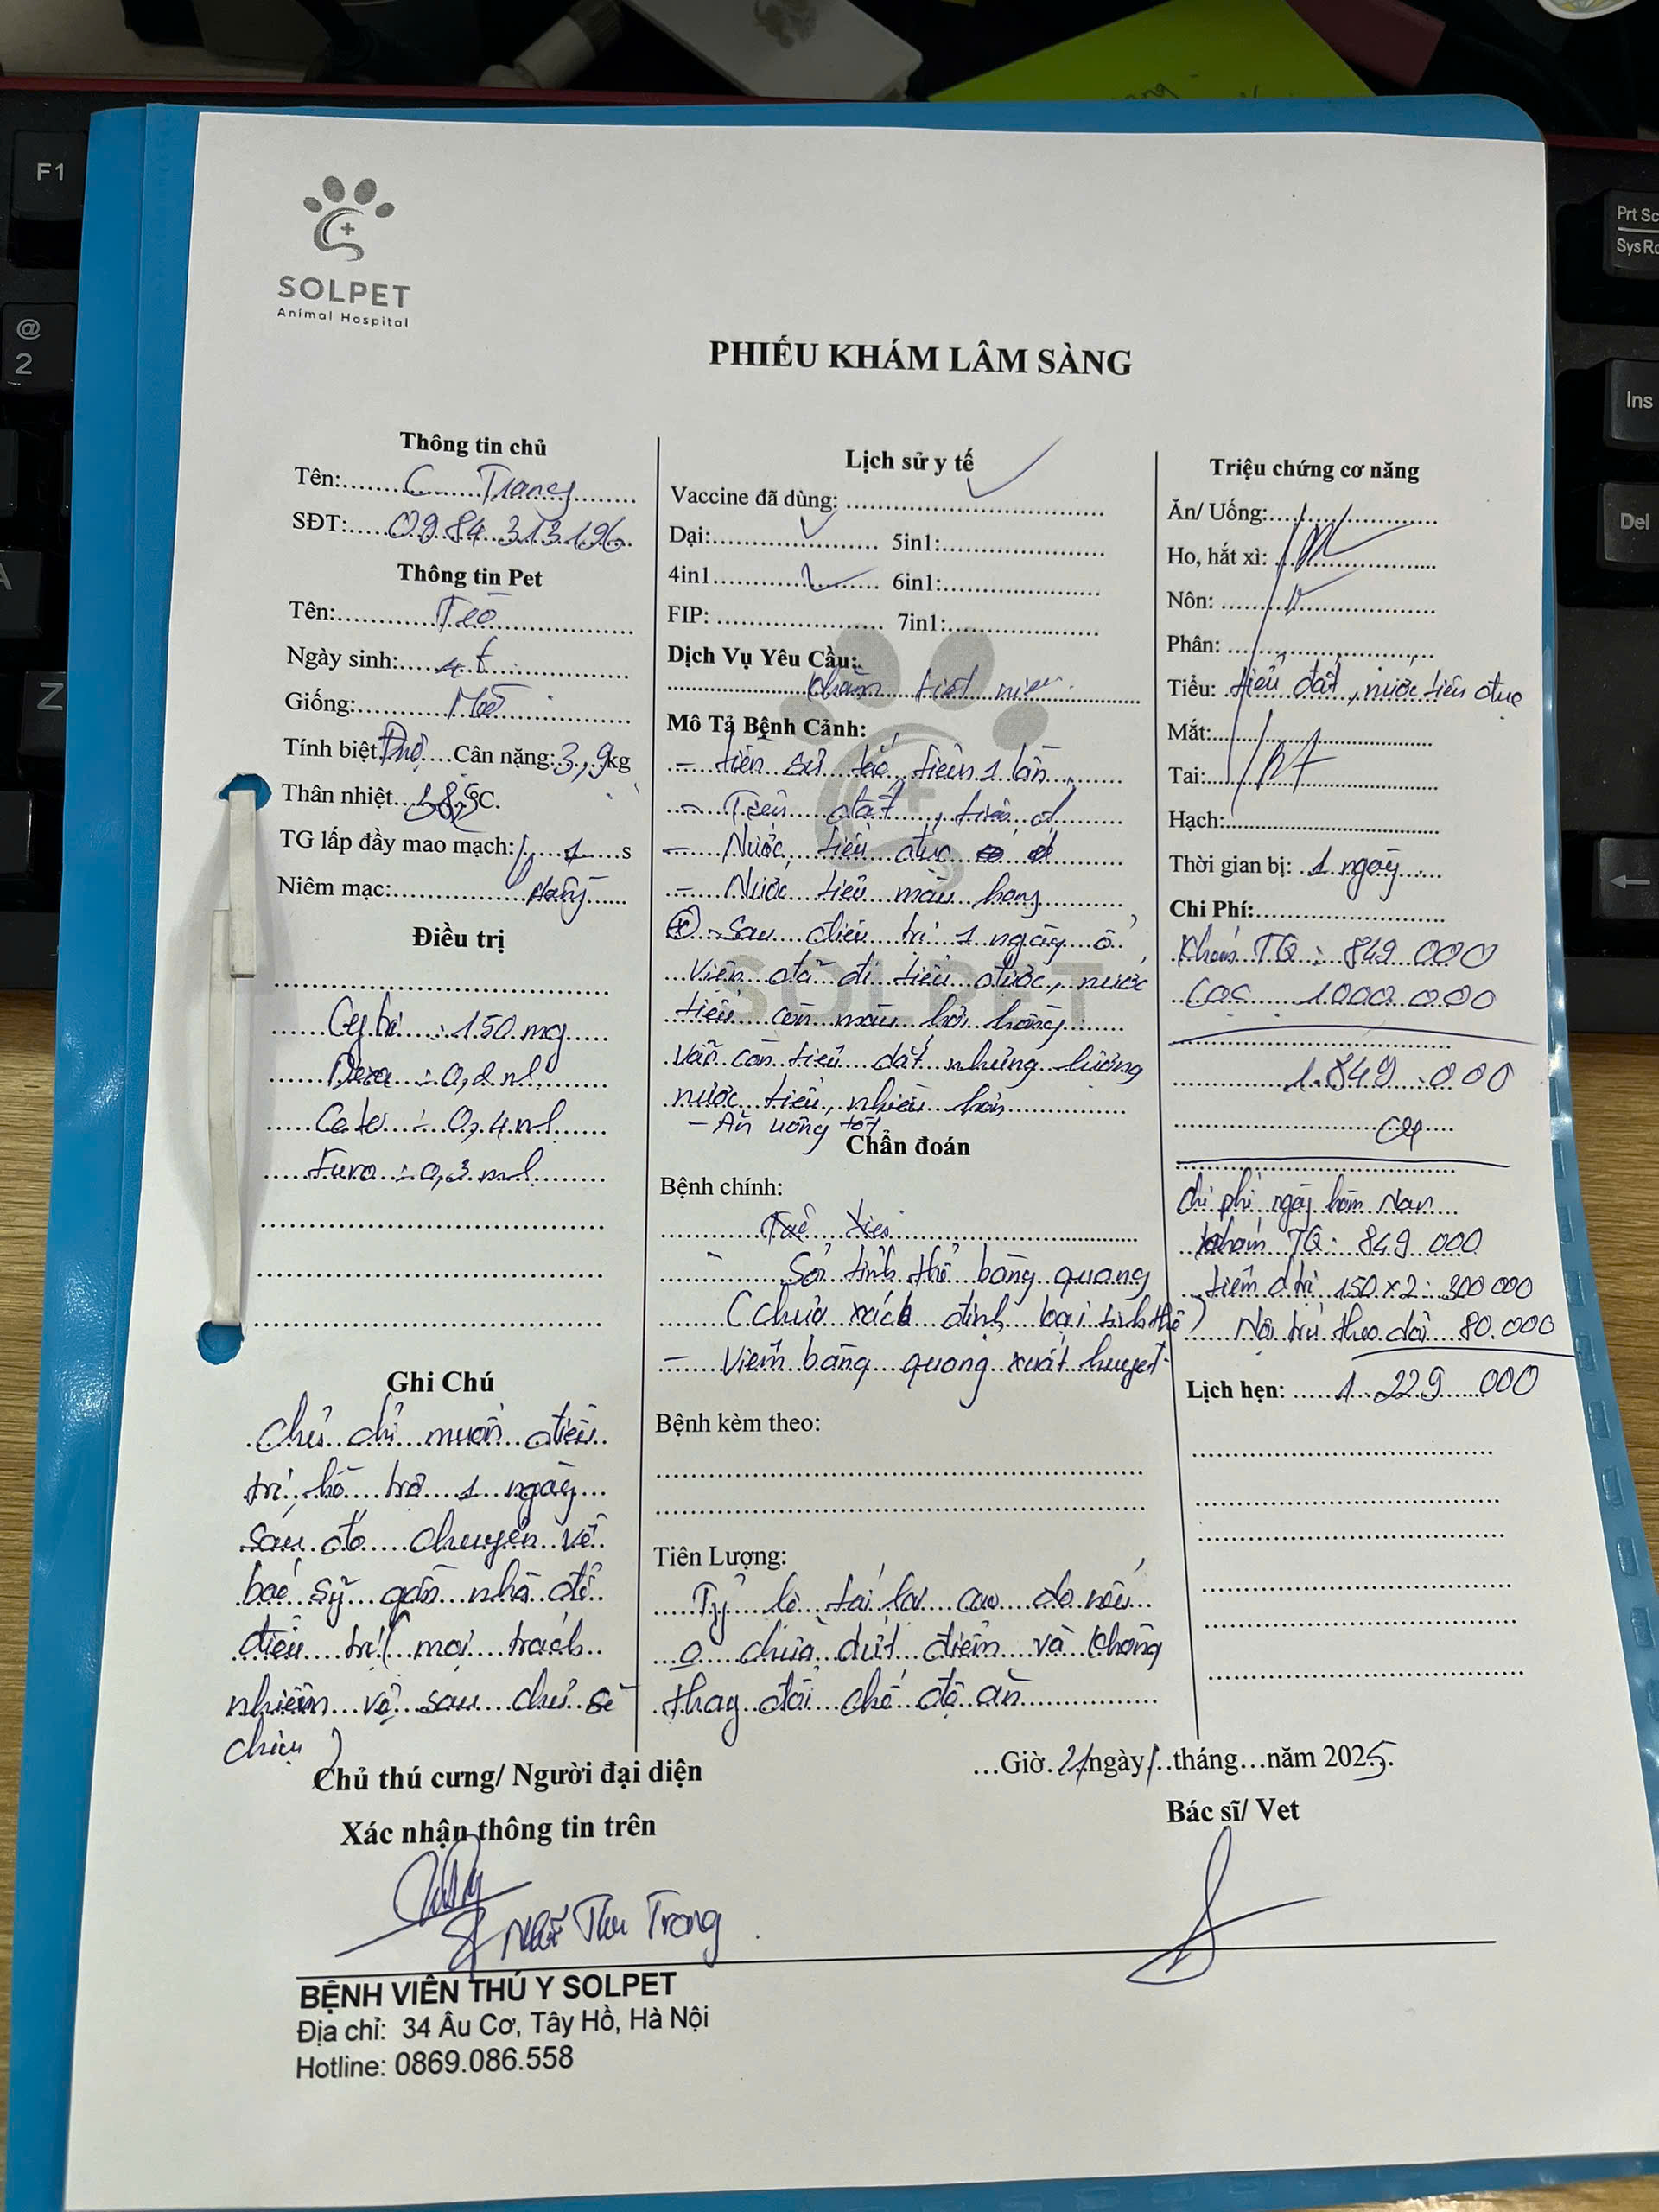 F1
@
2
A
Z
Prt Sc
SysRq
Ins
Del
SOLPET
Animal Hospital
PHIẾU KHÁM LÂM SÀNG
Thông tin chủ
Tên: C Trang
SĐT: 0984 313196
Thông tin Pet
Tên: Tèo
Ngày sinh: 4t
Giống: Mèo
Tính biệt Đực Cân nặng: 3,9kg
Thân nhiệt 38,5°C.
TG lấp đầy mao mạch: 1 s
Niêm mạc: Hồng
Điều trị
150 mg
Dexa : 0,2 ml
Cato : 0,4 ml
Furo : 0,3 ml
Ghi Chú
Chủ chỉ muốn điều
trị, hỗ trợ 1 ngày
sau đó chuyển về
bác sỹ gần nhà để
điều trị ( mọi trách
nhiệm về sau chủ sẽ
chịu )
Lịch sử y tế
Vaccine đã dùng:
Dại: ✓ 5in1:
4in1 ✓ 6in1:
FIP: 7in1:
Dịch Vụ Yêu Cầu:
khám tiết niệu
Mô Tả Bệnh Cảnh:
- tiền sử tắc tiểu 1 lần
- Tiểu dắt, tiểu
- Nước tiểu đục
- Nước tiểu màu hồng
(*) Sau điều trị 1 ngày ở
viện đã đi tiểu được, nước
tiểu còn màu hơi hồng
vẫn còn tiểu dắt nhưng lượng
nước tiểu nhiều hơn
- Ăn uống tốt
SOLPET
Chẩn đoán
Bệnh chính:
Sỏi tinh thể bàng quang
(chưa xác định loại tinh thể)
- Viêm bàng quang xuất huyết
Bệnh kèm theo:
Tiên Lượng:
Tỷ lệ tái lại cao do nếu
o chữa dứt điểm và không
thay đổi chế độ ăn
Triệu chứng cơ năng
Ăn/ Uống:
Ho, hắt xì:
Nôn:
Phân:
Tiểu: tiểu dắt, nước tiểu đục
Mắt:
Tai:
Hạch:
Thời gian bị: 1 ngày
Chi Phí:
Khám TQ : 849 000
Cọc 1000.000
1.849.000
chi phí ngày hôm nay
khám TQ: 849 000
tiêm đ trị 150 x 2 : 300 000
Nội trú theo dõi 80.000
Lịch hẹn: 1 229 000
Giờ 21 ngày 1 tháng năm 2025.
Chủ thú cưng/ Người đại diện
Xác nhận thông tin trên
Thu Trang
Bác sĩ/ Vet
BỆNH VIÊN THÚ Y SOLPET
Địa chỉ: 34 Âu Cơ, Tây Hồ, Hà Nội
Hotline: 0869.086.558